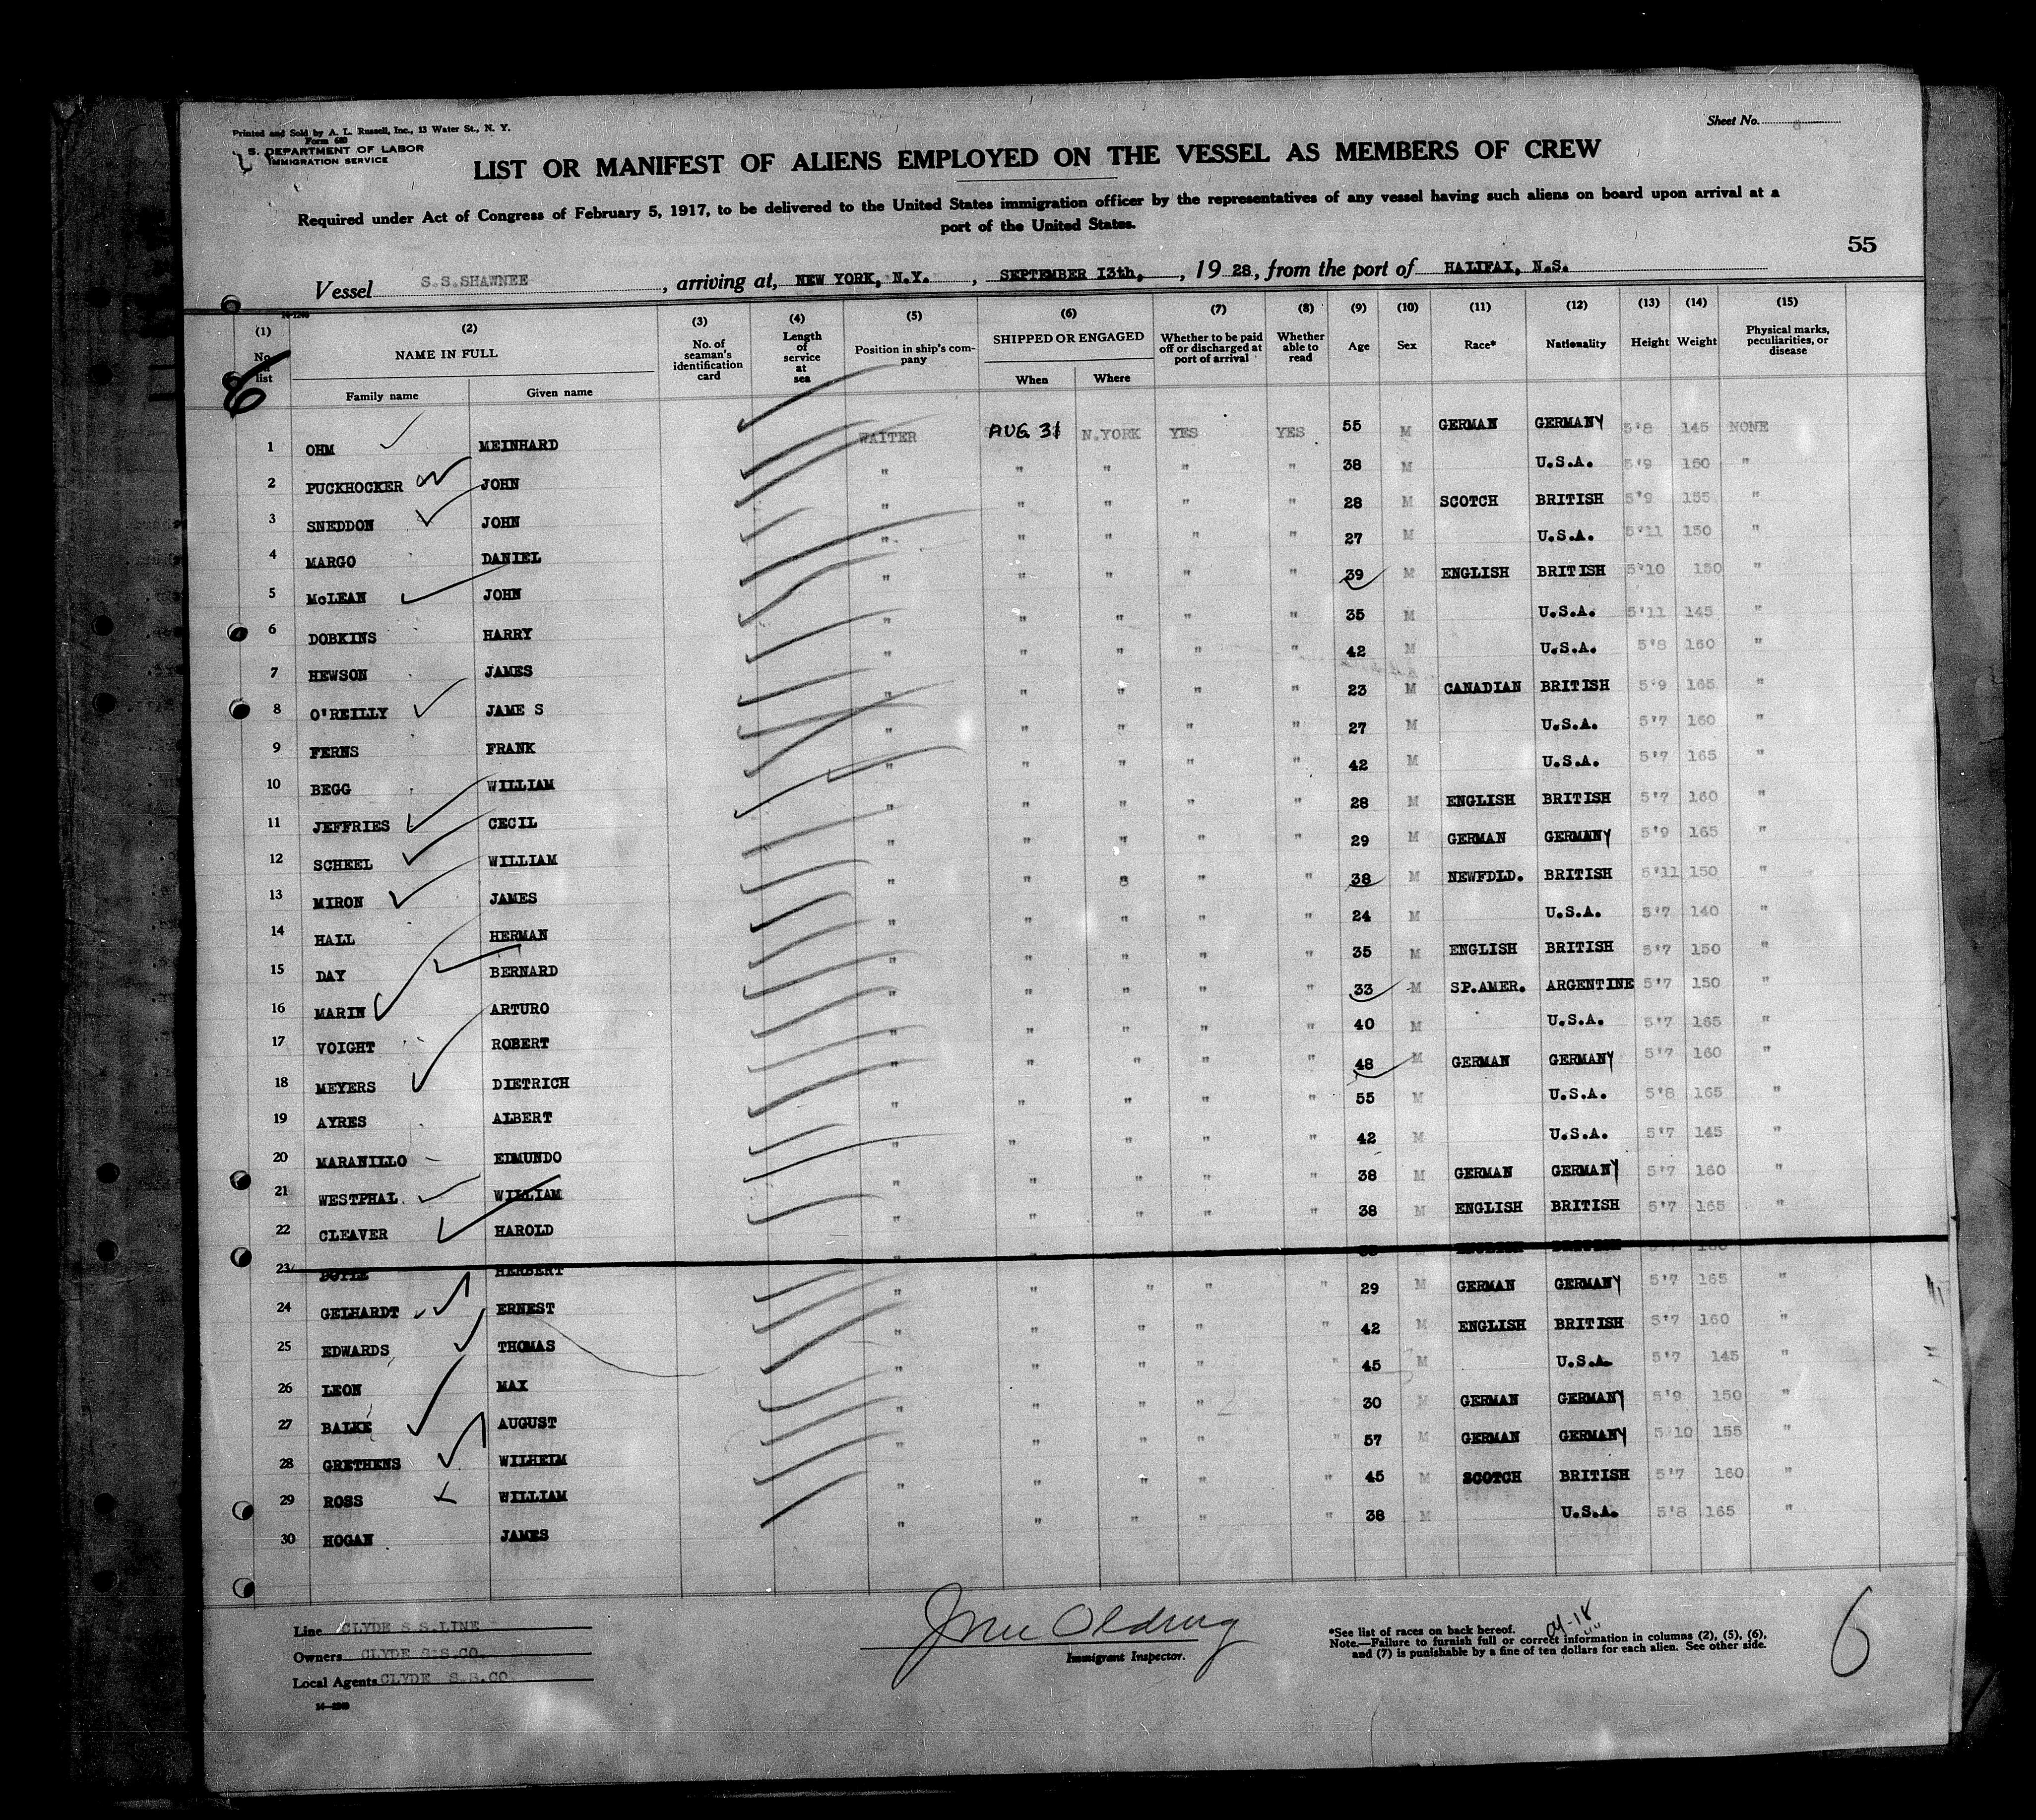 Printed and Sold by A. L. Russell, Inc., 13 Water St., N. Y.
Form 680
S. DEPARTMENT OF LABOR
IMMIGRATION SERVICE
Sheet No.
LIST OR MANIFEST OF ALIENS EMPLOYED ON THE VESSEL AS MEMBERS OF CREW
Required under Act of Congress of February 5, 1917, to be delivered to the United States immigration officer by the representatives of any vessel having such aliens on board upon arrival at a
port of the United States.
55
Vessel S.S.SHAWNEE, arriving at, NEW YORK, N.Y., SEPTEMBER 13th, , 19 28, from the port of HALIFAX, N.S.
(1) No. list
(2) NAME IN FULL Family name Given name
(3) No. of seaman's identification card
(4) Length of service at sea
(5) Position in ship's company
(6) SHIPPED OR ENGAGED When Where
(7) Whether to be paid off or discharged at port of arrival
(8) Whether able to read
(9) Age
(10) Sex
(11) Race*
(12) Nationality
(13) Height
(14) Weight
(15) Physical marks, peculiarities, or disease
1 OHM MEINHARD WAITER AUG. 31 N.YORK YES YES 55 M GERMAN GERMANY 5'8 145 NONE
2 PUCKHOCKER JOHN " " " " " 38 M U.S.A. 5'9 150 "
3 SNEDDON JOHN " " " " " 28 M SCOTCH BRITISH 5'9 155 "
4 MARGO DANIEL " " " " " 27 M U.S.A. 5'11 150 "
5 McLEAN JOHN " " " " " 39 M ENGLISH BRITISH 5'10 150 "
6 DOBKINS HARRY " " " " " 35 M U.S.A. 5'11 145 "
7 HEWSON JAMES " " " " " 42 M U.S.A. 5'8 160 "
8 O'REILLY JAME S " " " " " 23 M CANADIAN BRITISH 5'9 165 "
9 FERNS FRANK " " " " " 27 M U.S.A. 5'7 160 "
10 BEGG WILLIAM " " " " " 42 M U.S.A. 5'7 165 "
11 JEFFRIES CECIL " " " " " 28 M ENGLISH BRITISH 5'7 160 "
12 SCHEEL WILLIAM " " " " " 29 M GERMAN GERMANY 5'9 165 "
13 MIRON JAMES " " " " " 38 M NEWFDLD. BRITISH 5'11 150 "
14 HALL HERMAN " " " " " 24 M U.S.A. 5'7 140 "
15 DAY BERNARD " " " " " 35 M ENGLISH BRITISH 5'7 150 "
16 MARIN ARTURO " " " " " 33 M SP.AMER. ARGENTINE 5'7 150 "
17 VOIGHT ROBERT " " " " " 40 M U.S.A. 5'7 165 "
18 MEYERS DIETRICH " " " " " 48 M GERMAN GERMANY 5'7 160 "
19 AYRES ALBERT " " " " " 55 M U.S.A. 5'8 165 "
20 MARANILLO EDMUNDO " " " " " 42 M U.S.A. 5'7 145 "
21 WESTPHAL WILLIAM " " " " " 38 M GERMAN GERMANY 5'7 160 "
22 CLEAVER HAROLD " " " " " 38 M ENGLISH BRITISH 5'7 165 "
23 DOYLE HERBERT ENGLISH BRITISH
24 GELHARDT ERNEST " " " " " 29 M GERMAN GERMANY 5'7 165 "
25 EDWARDS THOMAS " " " " " 42 M ENGLISH BRITISH 5'7 160 "
26 LEON MAX " " " " " 45 M U.S.A. 5'7 145 "
27 BALKE AUGUST " " " " " 30 M GERMAN GERMANY 5'9 150 "
28 GRETHENS WILHELM " " " " " 57 M GERMAN GERMANY 5'10 155 "
29 ROSS WILLIAM " " " " " 45 M SCOTCH BRITISH 5'7 160 "
30 HOGAN JAMES " " " " " 38 M U.S.A. 5'8 165 "
Line CLYDE S.S.LINE
Owners CLYDE S.S.CO.
Local Agents CLYDE S.S.CO
Immigrant Inspector.
*See list of races on back hereof.
Note.—Failure to furnish full or correct information in columns (2), (5), (6),
and (7) is punishable by a fine of ten dollars for each alien. See other side.
6